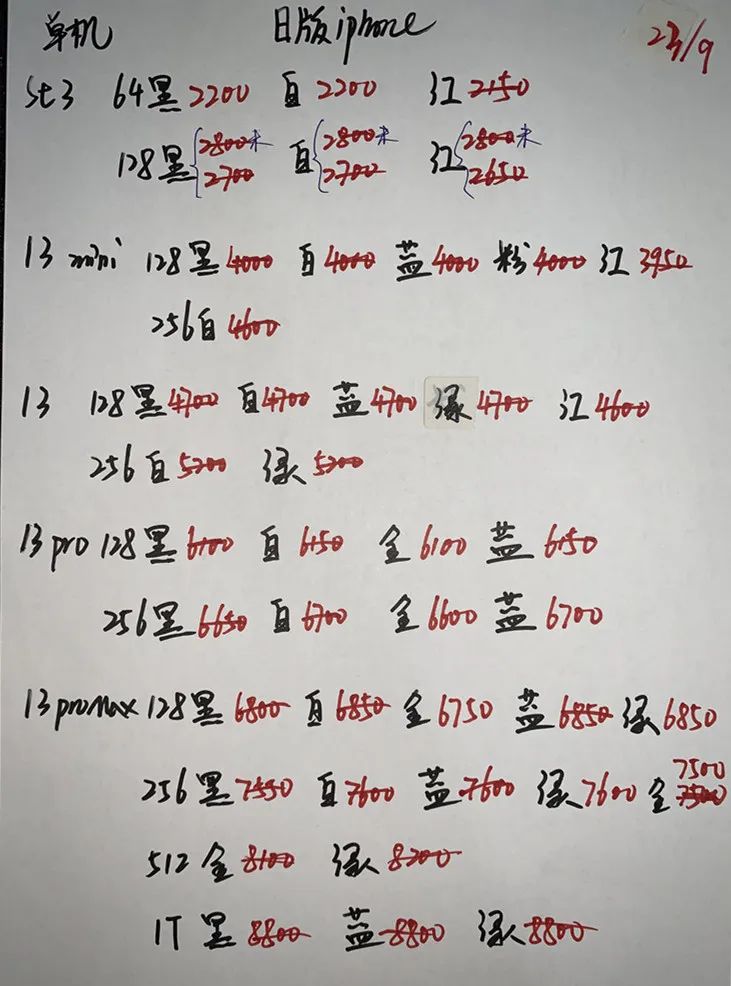 单机 日版iphone 23/9
se3 64黑2200 白2200 红2150
128黑2800未 白2800未 红2800未
2700 2700 2650
13 mini 128黑4000 白4000 蓝4000 粉4000 红3950
256白4600
13 128黑4700 白4700 蓝4700 绿4700 红4600
256白5200 绿5200
13 pro 128黑6100 白6150 金6100 蓝6150
256黑6650 白6700 金6600 蓝6700
13 promax 128黑6800 白6850 金6750 蓝6850 绿6850
7500
256黑7550 白7600 蓝7600 绿7600 金7500
512金8100 绿8200
1T黑8800 蓝8800 绿8800